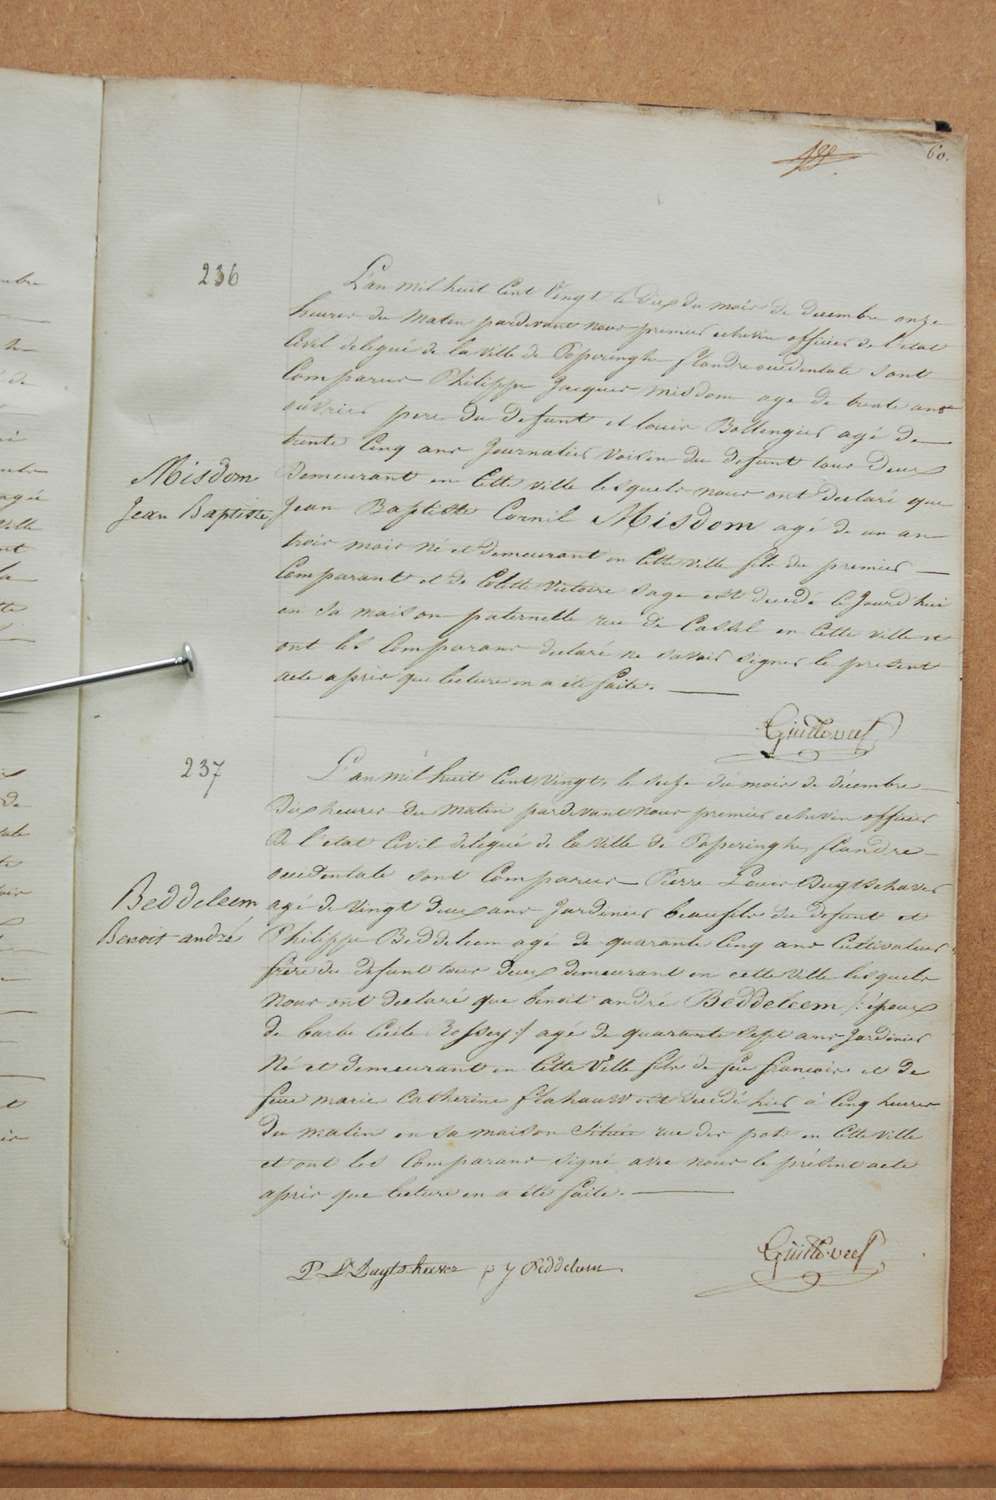 60.
236
L'an mil huit cent vingt le dix du mois de decembre onze
heures du matin pardevant nous premier echevin officier de l'etat
civil delegué de la ville de Poperinghe flandre occidentale sont
comparus Philippe Jacques Misdom age de trente ans
ouvrier pere du defunt et louis Bollengier agé de
trente cinq ans Journalier voisin du defunt tous deux
Misdom
demeurant en cette ville lesquels nous ont declaré que
Jean Baptiste
Jean Baptiste Cornil Misdom agé de un an
trois mois né et demeurant en cette ville fils du premier
comparant et de Colette Victoire Sage est decedé ce Jourd'hui
en sa maison paternelle rue de Cassel en cette ville et
ont les comparans declare ne savoir signer le present
acte aprés que lecture en a été faite.
237
L'an mil huit cent vingt, le seize du mois de décembre
dix heures du matin pardevant nous premier echevin officier
de l'etat civil delegué de la ville de Poperinghe, flandre
occidentale sont comparus Pierre Louis Duytschaver
Beddeleem
agé de vingt deux ans Jardinier beaufils du defunt et
Benoit andré
Philippe Beddeleem agé de quarante cinq ans cultivateur
frère du defunt tous deux demeurant en cette ville lesquels
nous ont declaré que benoit andré Beddeleem /: époux
de barbe Cecile :/ age de quarante sept ans Jardinier
né et demeurant en cette ville fils de feu francois et de
feue marie Catherine flahauw est decedé hier à cinq heures
du matin en sa maison située rue des pots en cette ville
et ont les comparans signé avec nous le présent acte
aprés que lecture en a été faite.
Beddeleem